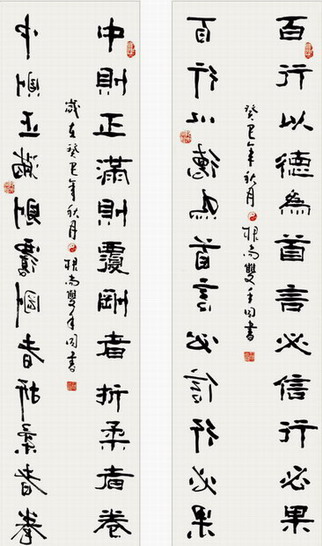 百行以德為首言必信行必果
癸巳年秋月根尚雙手同書
百行以德為首言必信行必果
中則正滿則覆剛者折柔者卷
歲在癸巳年秋月根尚雙手同書
中則正滿則覆剛者折柔者卷